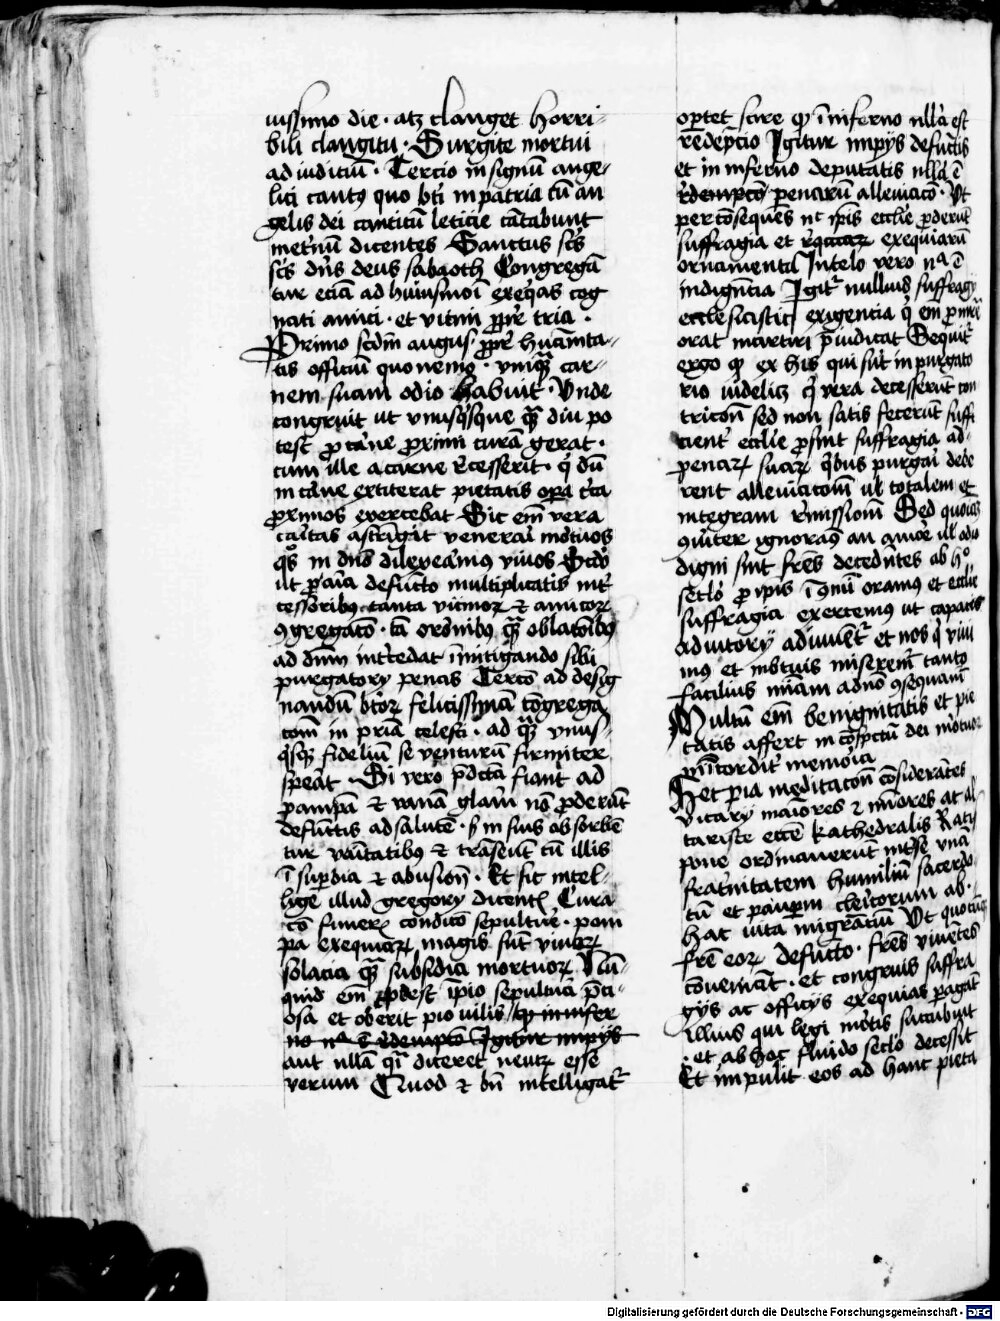 uissimo die · atz clanget horri-
bili clangitu · Surgite mortui
ad iuditiū · Tercio in signū ange-
lici cantꝰ quo bt̄i in patria cū an
gelis dei canticū leticie cātabunt
met̄nū dicentes Sanctus sc̄s
sc̄s dn̄s deus sabaoth Congregā
tur eciā ad huiusmoī exeq̄as cog
nati amici · et vicini ꝓpt̄ tria ·
Primo scd̄m augus ꝓpt̄ humāita-
tis officiū quo nemo · vniqꝫ car-
nem suam odio habuit · Unde
congruit ut vnusqͥsque qꝫ diu po
test ꝓ carne proximi curā gerat ·
cum ille a carne recesserit · qͥ dū
in carne extiterat pietatis opa
proximos exercebat Sic em̄ vera
caritas astringit venerari mortuos
qͦs in dn̄o dileximus viuos Scd̄o
ut ꝓ aīa defūcto multiplicatis int̄
cessoribꝰ tanta vicinoꝝ ⁊ amicoꝝ
ꝯgregacō · tā orōnibꝰ qꝫ oblacōibꝰ
ad dn̄m int̄cedat ī mitigando sibi
purgatorÿ penas Tercō ad desig
nandū bt̄oꝝ felicissimā cōgrega
cōm in pr̄iam celesti · ad qꝫ vnus-
qͥsqꝫ fideliū se venturū firmiter
sperāt · Si vero p̄dcā fiant ad
pampā ⁊ vanā glām nō ꝓderūt
defūctis ad salutē · sꝫ in suis absorbē
tur vāitatibꝰ ⁊ trāseūt cū illis
ī supbia ⁊ abusionē · Et sic intel-
lige illud gregorÿ dicent̄ Cura
cō funeꝝ condicō sepulture · pom
pa exequiaꝝ magis sūt viuoꝝ
solacia qꝫ subsidia mortuoꝝ Nū-
quid em̄ ꝓdest īpio sepultura p̄ci-
osa et oberit pio uilis qꝫ in infer
no nͣ ē redempco Igitur impÿs
aut nllā qͥ diceret neutꝝ esse
verum Quod ⁊ bn̄ intelligat̄
oportet scire qꝫ ī inferno nulla est
redēpcio Igitur impÿs defūctis
et in inferno deputatis nulla ē
redempco penarū alleuiacō · Ut
per cōseques nc ipīs eccl̄ie ꝓderūt
suffragia et exequiarū
ornamenta In celo vero nͣ ē
indigncia Igitͬ nullius suffragÿ
ecclesiasticj exigencia qͥ em ꝓ mr̄e
orat martiri p̄iudicat Sequit̄
ergo qꝫ ex his qui sūt in purgato
rio iudeliꝫ qͥ vera decesserūt con
tricōn sed non satis fecerūt suffi
cient̄ eccl̄ie ꝓsint suffragia ad-
penaꝝ suaꝝ qͥbus purgari debe
rent alleuiacionē ul totalem et
integram remissionē Sed quoias
ꝯmiter ignoramꝰ an amore ul odio
digni sint fr̄es decedentes ab hͦ
sclō ꝓ ipis ī ꝯmūi oramꝰ et eccl̄ie
suffragia exercemꝰ ut capaces
adiutorÿ adiuuent̄ et nos qͥ viui
mꝰ et mortuis miserem̄ tanto
facilius mīam a dn̄o ꝯsequam̄
Multū em̄ benignitatis et pie
tatis affert in cōspectū dei mortuoꝝ
misericordit̄ memoria
Hec pia meditacōn cōsiderātes
vicarÿ maiores ⁊ mīores ac al
tariste eccē kathedralis Ratis
pone ordinauerūt int̄ se vnā
fraternitatem humiliū sacerdo
tū et pauperum clericorum ab ·
hac uita migrāciū Ut quociēs
fr̄e eoꝝ defūcto · fr̄es viuētes
cōueniāt · et congruis suffra
gÿs ac officÿs exequias pagāt
illius qui legi mortis succubuit
· et ab hoc fluido seclō decessit
Et impulit eos ad hanc pieta
Digitalisierung gefördert durch die Deutsche Forschungsgemeinschaft - DFG